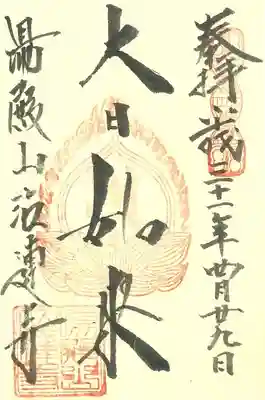 奉拝 平成二十一年四月廿九日
大日如来
湯殿山注連寺